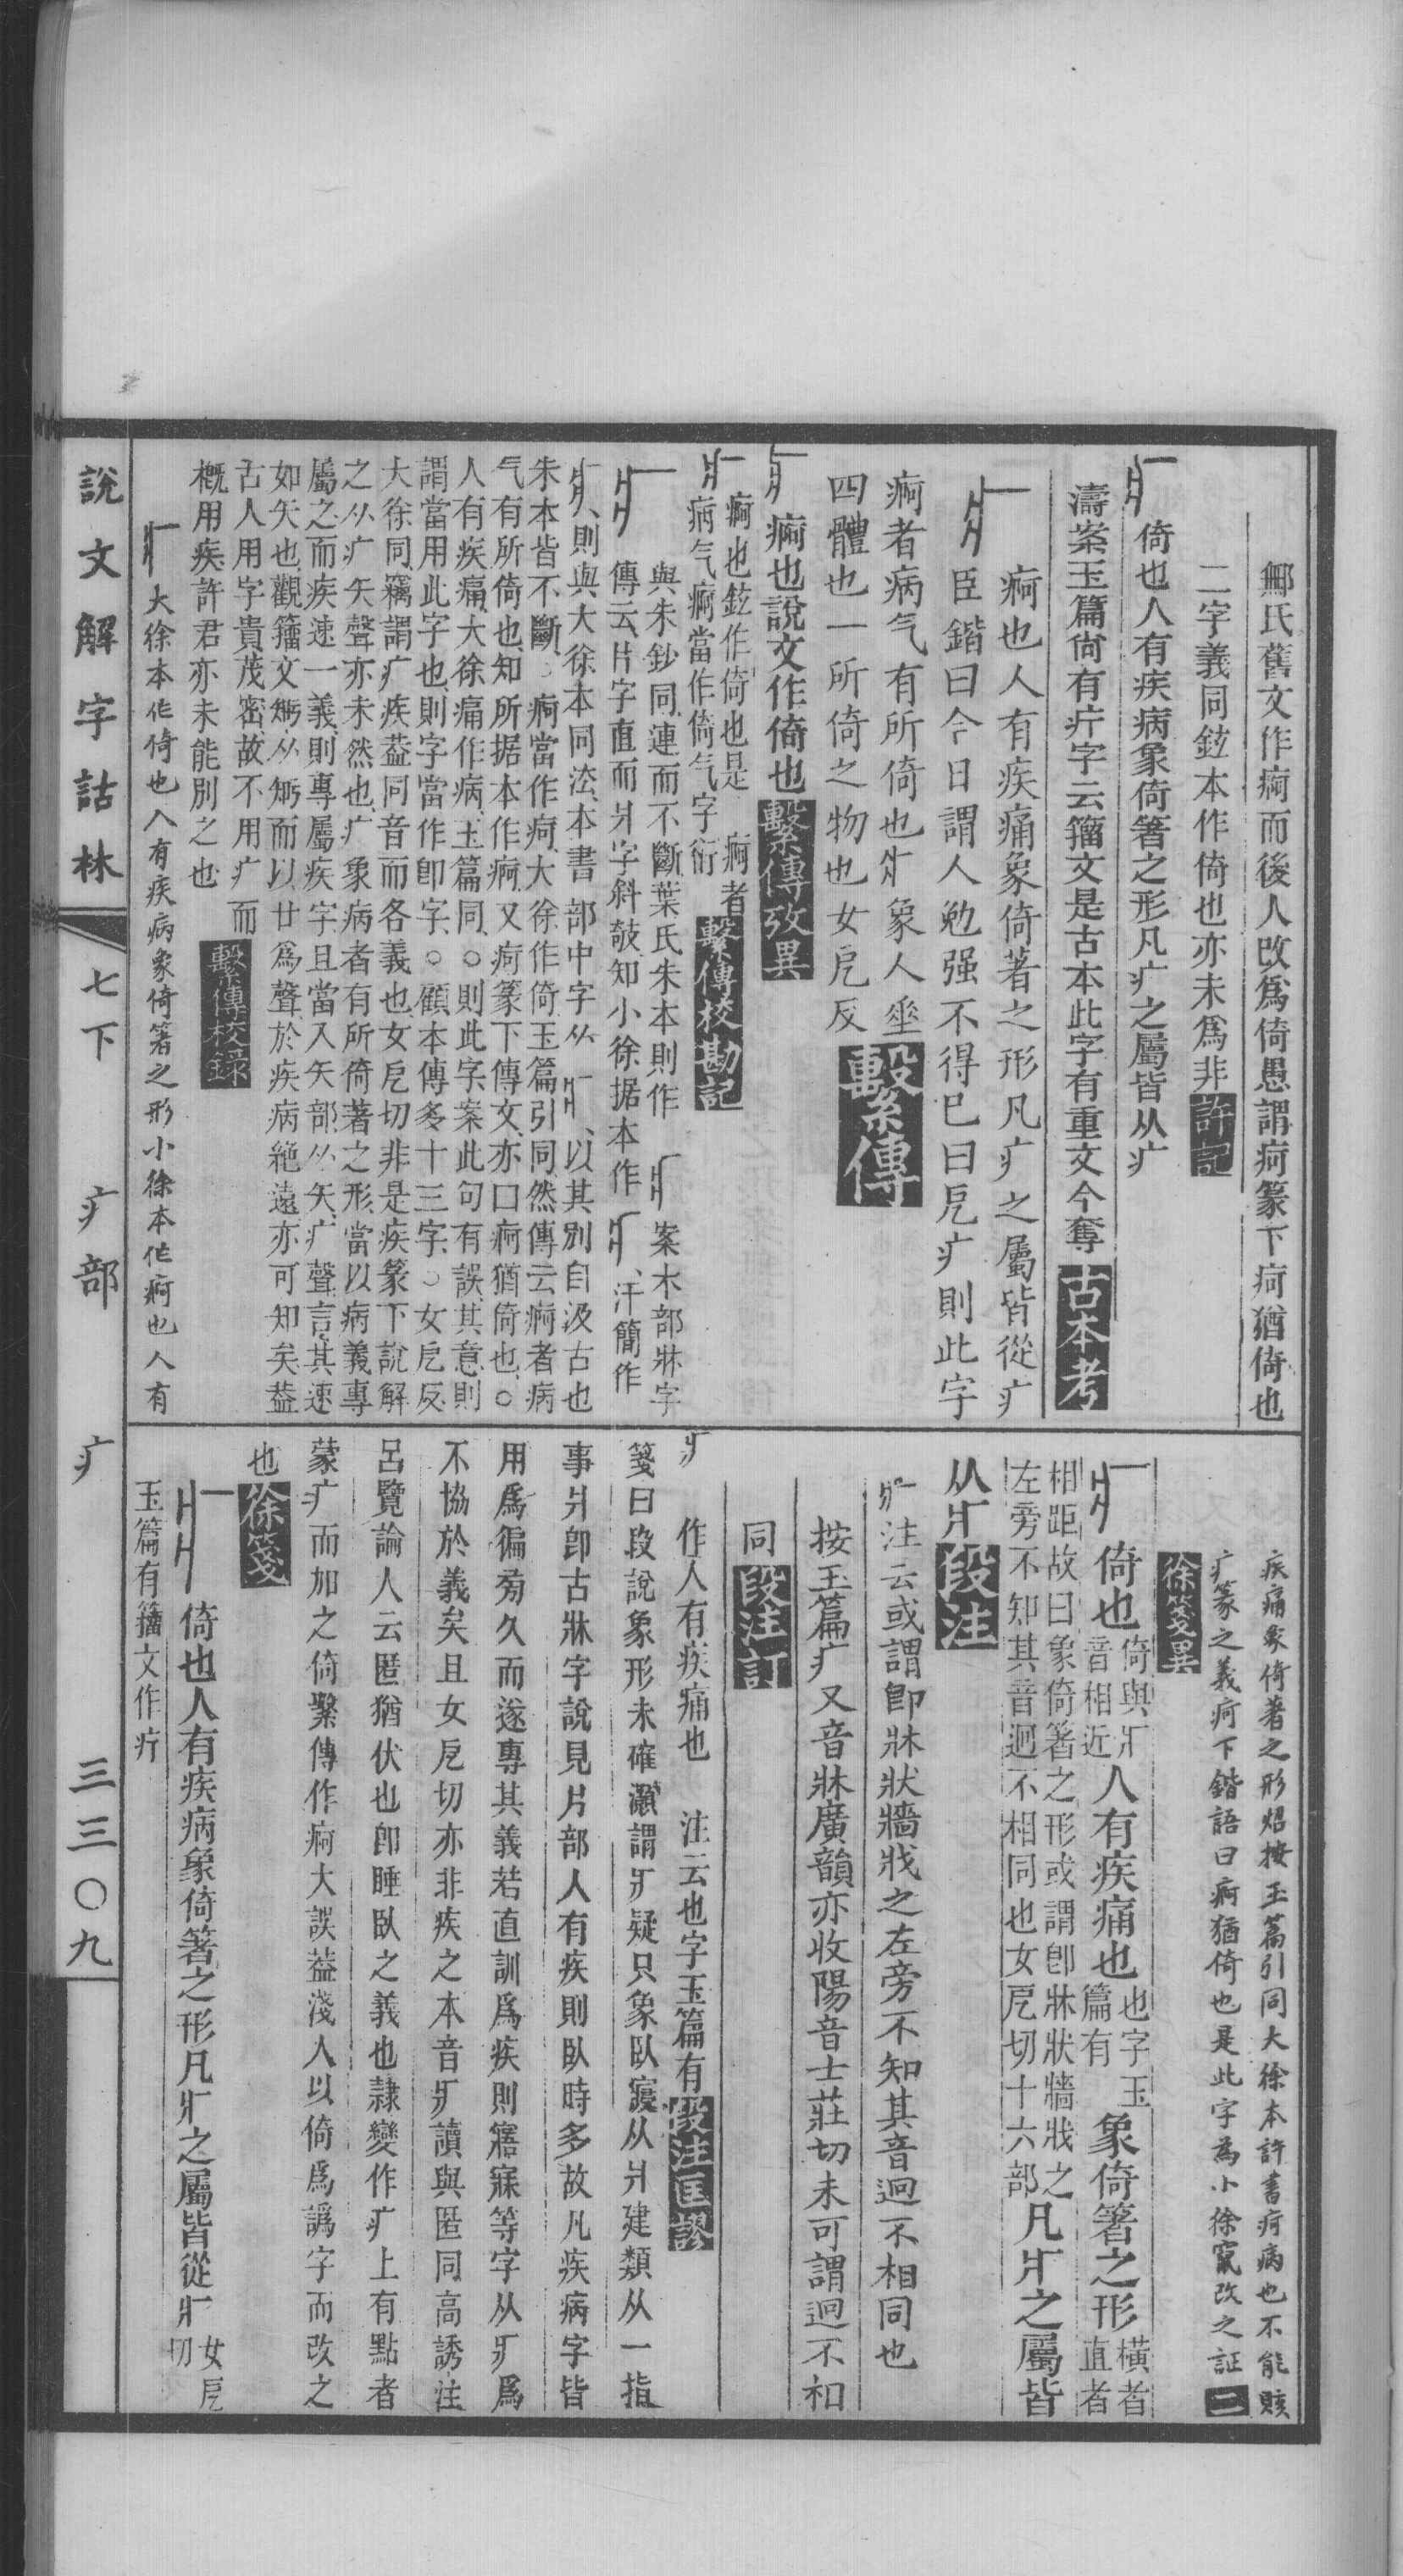 鄦氏舊文作痾而後人改爲倚愚謂疴篆下疴猶倚也
二字義同鉉本作倚也亦未爲非許記
倚也人有疾病象倚箸之形凡疒之屬皆从疒
濤案玉篇尙有疔字云籀文是古本此字有重文今奪古本考
痾也人有疾痛象倚著之形凡疒之屬皆從疒
臣鍇曰今日謂人勉强不得已曰戹疒則此字
痾者病气有所倚也爿象人坐
四體也一所倚之物也女戹反繫傳
痾也說文作倚也繫傳攷異
痾也鉉作倚也是 痾者
病气痾當作倚气字衍繫傳校勘記
與朱鈔同連而不斷葉氏朱本則作 案木部牀字
傳云爿字直而爿字斜攲知小徐据本作 汗簡作
則與大徐本同法本書部中字从 以其別自汲古也
朱本皆不斷○痾當作疴大徐作倚玉篇引同然傳云痾者病
气有所倚也知所据本作痾又疴篆下傳文亦口疴猶倚也○
人有疾痛大徐痛作病玉篇同○則此字案此句有誤其意則
謂當用此字也則字當作卽字○顧本傳多十三字○女戹反
大徐同竊謂疒疾葢同音而各義也女戹切非是疾篆下說解
之从疒矢聲亦未然也疒象病者有所倚著之形當以病義專
屬之而疾速一義則專屬疾字且當入矢部从矢疒聲言其速
如矢也觀籀文𥏾从𥏾而以廿爲聲於疾病絶遠亦可知矣葢
古人用字貴茂密故不用疒而
槪用疾許君亦未能別之也繫傳校錄
大徐本作倚也人有疾病象倚箸之形小徐本作痾也人有
疾痛象倚著之形炤按玉篇引同大徐本許書疴病也不能賅
疒篆之義疴下鍇語曰痾猶倚也是此字爲小徐竄改之証二
徐箋異
倚也倚與疒
音相近人有疾痛也也字玉
篇有象倚箸之形橫者
直者
相距故曰象倚箸之形或謂卽牀狀牆戕之
左旁不知其音迥不相同也女戹切十六部凡疒之屬皆
从疒段注
注云或謂卽牀狀牆戕之左旁不知其音迥不相同也
按玉篇疒又音牀廣韻亦收陽音士莊切未可謂迥不相
同段注訂
疒
作人有疾痛也 注云也字玉篇有段注匡謬
箋曰段說象形未確灝謂疒疑只象臥寢从爿建類从一指
事爿卽古牀字說見片部人有疾則臥時多故凡疾病字皆
用爲徧旁久而遂專其義若直訓爲疾則寤寐等字从疒爲
不協於義矣且女戹切亦非疾之本音疒讀與匿同高誘注
呂覽論人云匿猶伏也卽睡臥之義也隷變作疒上有點者
蒙疒而加之倚繫傳作痾大誤葢淺人以倚爲譌字而改之
也徐箋
倚也人有疾病象倚箸之形凡疒之屬皆從疒女戹
切
玉篇有籀文作疔
說文解字詁林
七下 疒部 疒 三三〇九